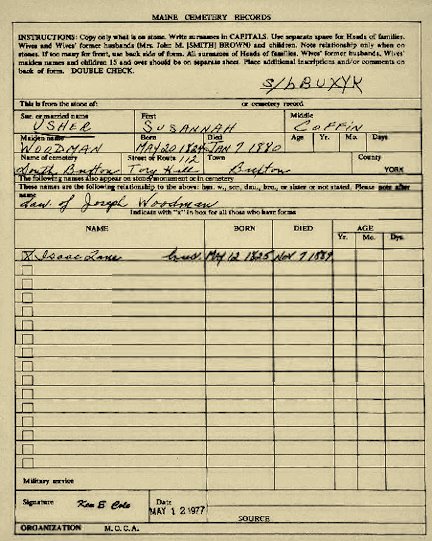 MAINE CEMETERY RECORDS
INSTRUCTIONS: Copy only what is on stone. Write surnames in CAPITALS. Use separate space for Heads of families.
Wives and Wives' former husbands (Mrs. John M. [SMITH] BROWN) and children. Note relationship only when on
stones. If too many for front, use back side of form. All surnames of Heads of families. Wives' former husbands, Wives'
maiden names and children 15 and over should be on separate sheet. Place additional inscriptions and/or comments on
back of form. DOUBLE CHECK.
S/b BUXYK
This is from the stone of: or cemetery record
Sur. or married name First Middle
USHER SUSANNAH COFFIN
Maiden name Born Died Age Yr. Mo. Days
WOODMAN MAY 20 1824 JAN 7 1880
Name of cemetery Street or Route 112 Town County
South Buxton Tory Hill Buxton YORK
The following names also appear on stone/monument or in cemetery
These names are the following relationship to the above: hus. w., son, dau., bro., or sister or not stated. Please note after
name
dau. of Joseph Woodman
Indicate with "x" in box for all those who have forms
NAME BORN DIED AGE
Yr. Mo. Dys.
X Isaac Lane hus May 12 1825 Nov 7 1889
Military service
Signature Ken E Cole Date MAY 12 1977
SOURCE
ORGANIZATION M.O.C.A.